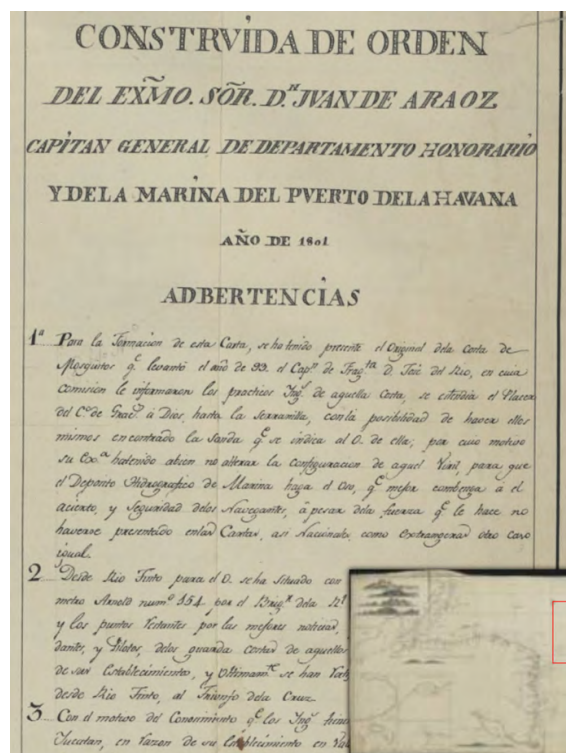 CONSTRVIDA DE ORDEN
DEL EXM̃O. SOR̃. D.ⁿ JVAN DE ARAOZ
CAPITAN GENERAL DE DEPARTAMENTO HONORARIO
Y DE LA MARINA DEL PVERTO DE LA HAVANA
AÑO DE 1801
ADBERTENCIAS
1ª Para la Formacion de esta Carta, se ha tenido presente el Original dela Costa de
Mosquitos q.ᵉ levantó el año de 93. el Cap.ⁿ de Frag.ᵗᵃ D. José del Rio, en cuia
comision le informaron los practicos Ing.ˢ de aquella Costa, se estendia el Placer
del C.º de Grac.ˢ á Dios hasta la Serranilla, con la posibilidad de haver ellos
mismos encontrado la Sonda q.ᵉ se indica al O. de ella; por cuio motivo
su Ex.ª ha tenido abien no alterar la configuracion de aquel Veril, para que
el Deposito Hidrografico de Marina haga el Uso, q.ᵉ mejor combenga a el
acierto, y Seguridad delos Navegantes, á pesar dela fuerza q.ᵉ le hace no
haverse presentado en las Cartas, asi Nacionales como Extrangeras otro caso
igual.
2 Desde Rio Tinto para el O. se ha Situado con
metro Arnold num.º 354, por el Brig.ʳ dela R.ˡ
y los puntos restantes por las mejores noticias
dantes, y Pilotos delos guarda costas de aquellos
de sus Establecimientos, y Ultimam.ᵗᵉ se han
desde Rio Tinto, al Triunfo dela Cruz
3 Con el motivo del Conocimiento q.ᵉ los Ing.ˢ
Yucatan, en razon de su Establecimiento en